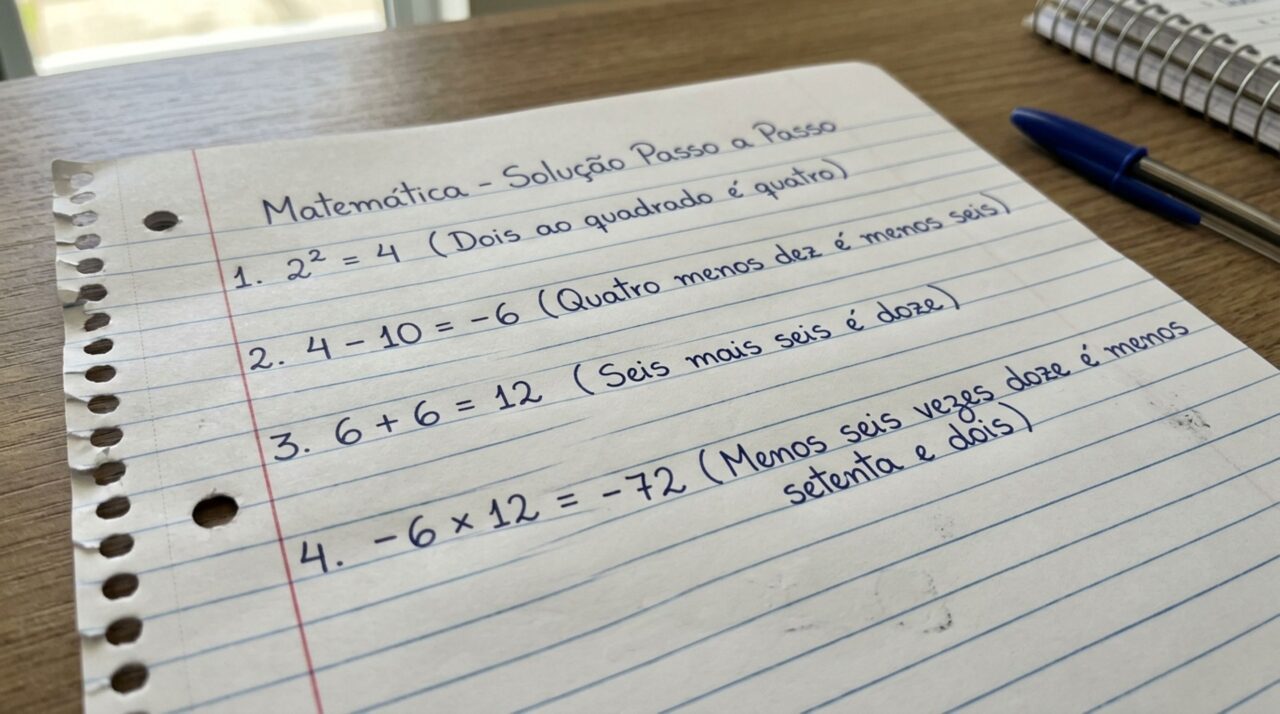 Matemática - Solução Passo a Passo
1. 2² = 4 (Dois ao quadrado é quatro)
2. 4 - 10 = -6 (Quatro menos dez é menos seis)
3. 6 + 6 = 12 (Seis mais seis é doze)
4. -6 × 12 = -72 (Menos seis vezes doze é menos
setenta e dois)